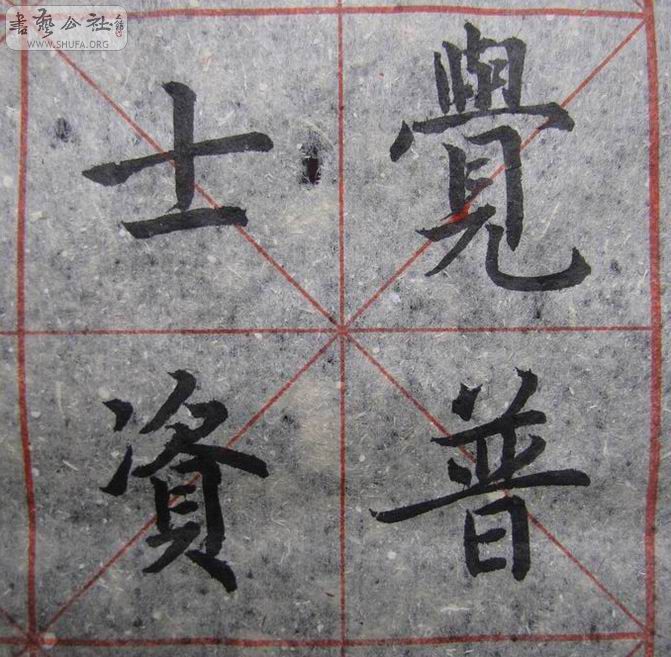 覺普
士資
書藝公社
WWW.SHUFA.ORG